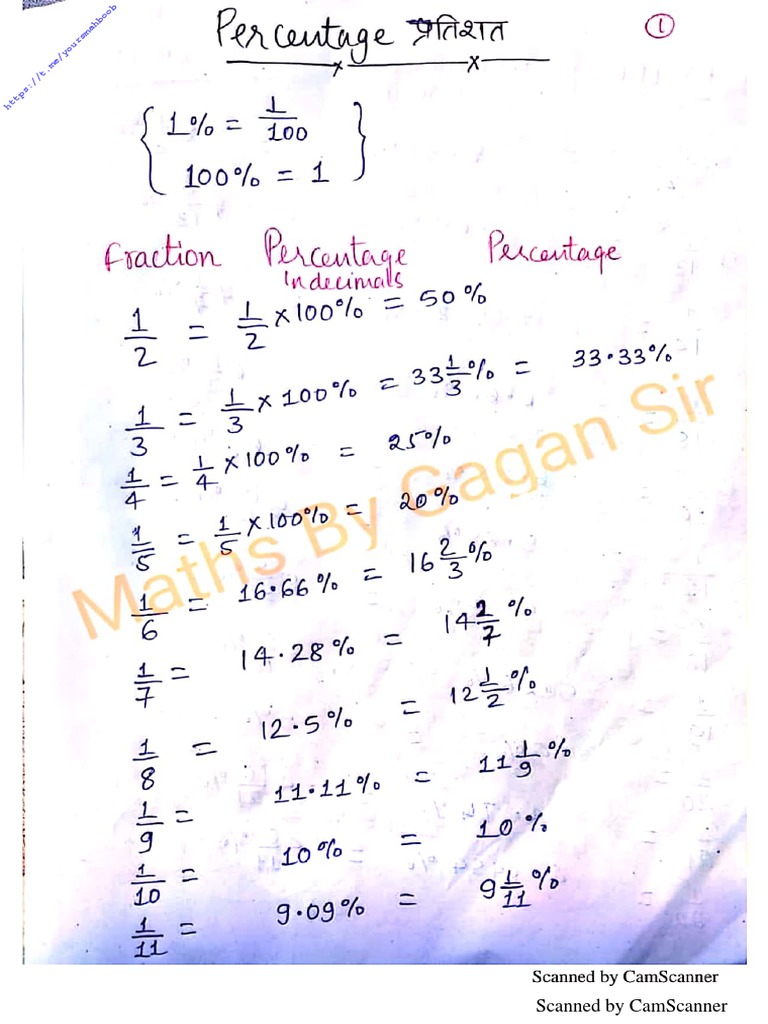 https://t.me/yourmahboob
Percentage प्रतिशत
1
1% = 1/100
100% = 1
Fraction Percentage Indecimals Percentage
1/2 = 1/2 × 100% = 50%
1/3 = 1/3 × 100% = 33 1/3% = 33.33%
1/4 = 1/4 × 100% = 25%
1/5 = 1/5 × 100% = 20%
1/6 = 16.66% = 16 2/3%
1/7 = 14.28% = 14 2/7%
1/8 = 12.5% = 12 1/2%
1/9 = 11.11% = 11 1/9%
1/10 = 10% = 10%
1/11 = 9.09% = 9 1/11%
Maths By Gagan Sir
Scanned by CamScanner
Scanned by CamScanner